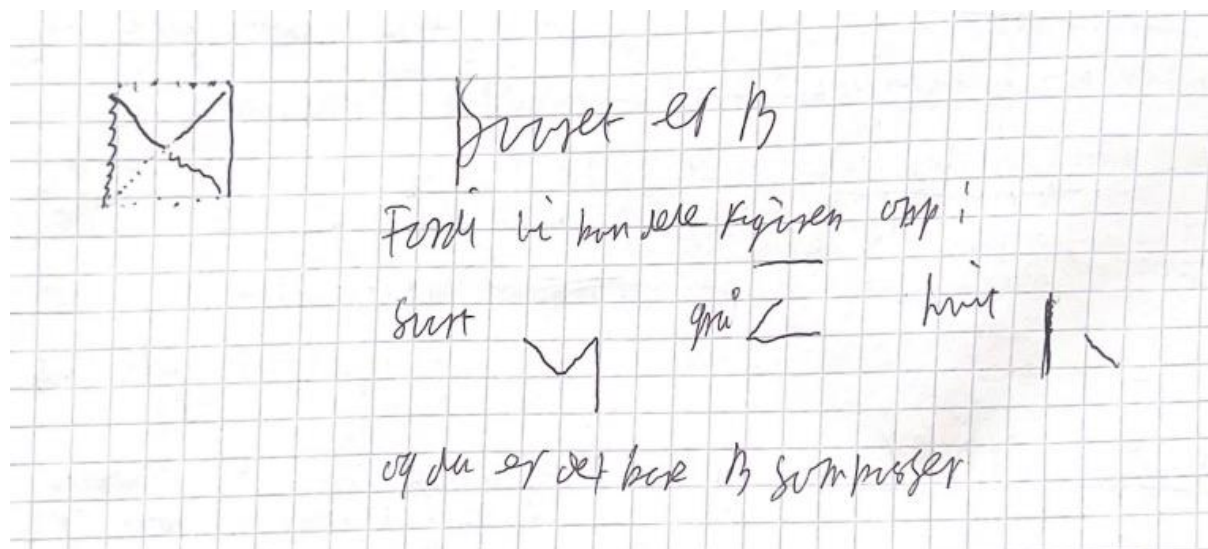 Svaret er B
Fordi vi kan dele figuren opp i
svart grå hvit
og da er det bare B som passer